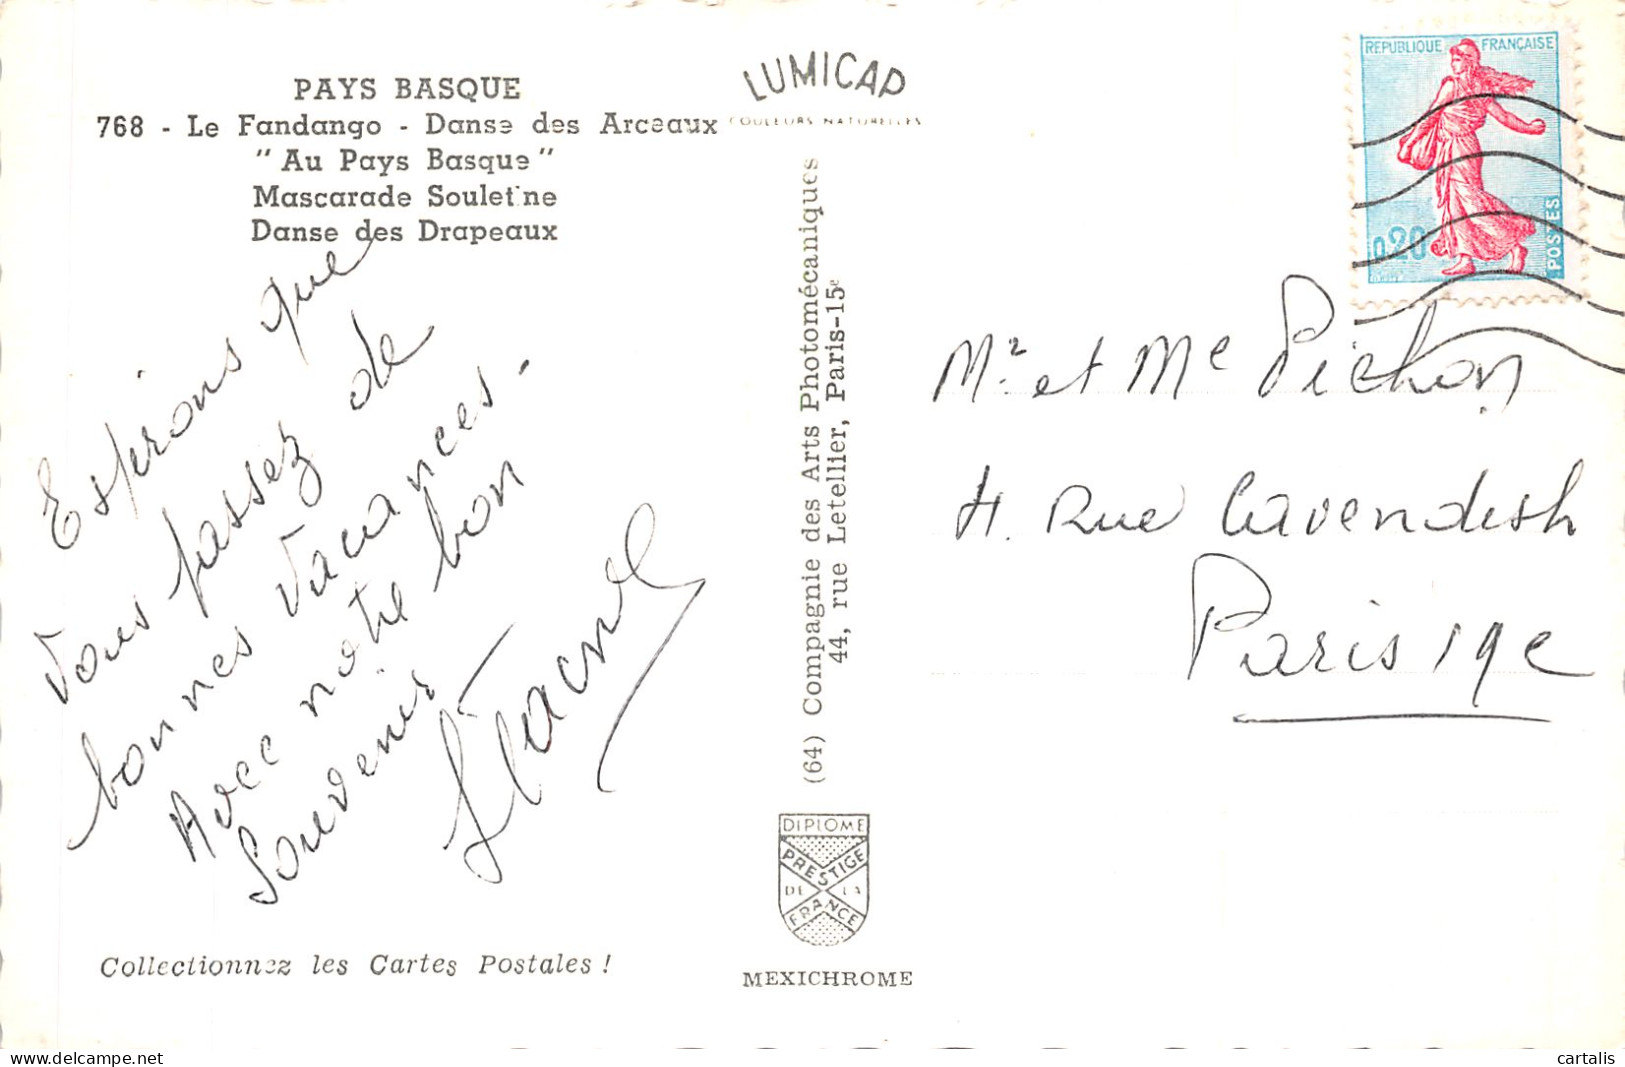 PAYS BASQUE
768 - Le Fandango - Danse des Arceaux
" Au Pays Basque "
Mascarade Souletine
Danse des Drapeaux
Espérons que
vous passez de
bonnes vacances.
Avec notre bon
Souvenir
Collectionnez les Cartes Postales !
LUMICAP
COULEURS NATURELLES
(64) Compagnie des Arts Photomécaniques
44, rue Letellier, Paris-15e
DIPLOME
PRESTIGE
DE LA
FRANCE
MEXICHROME
REPUBLIQUE FRANÇAISE
0,20
POSTES
Mr et Me Pichon
4. Rue Cavendish
Paris 19e
www.delcampe.net
cartalis